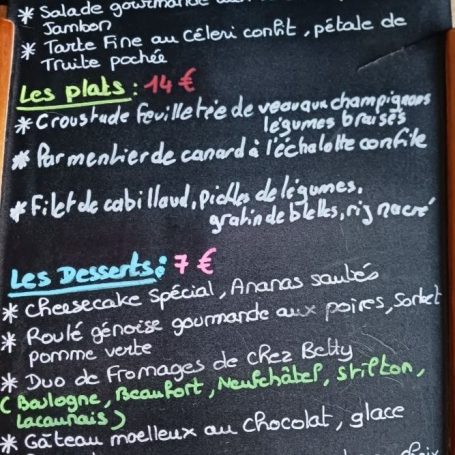 * Salade gourmande
Jambon
* Tarte Fine au céleri confit, pétale de
Truite pochée
Les plats : 14 €
* Croustade feuilletée de veau aux champignons
légumes braisés
* Parmentier de canard à l'échalotte confite
* Filet de cabillaud, pickles de légumes,
gratin de blettes, riz nacré
Les Desserts : 7 €
* Cheesecake Spécial, Ananas sautés
* Roulé génoise gourmande aux poires, Sorbet
pomme verte
* Duo de Fromages de chez Betty
( Boulogne, Beaufort, Neufchâtel, stilton,
Lacaunais )
* Gâteau moelleux au chocolat, glace